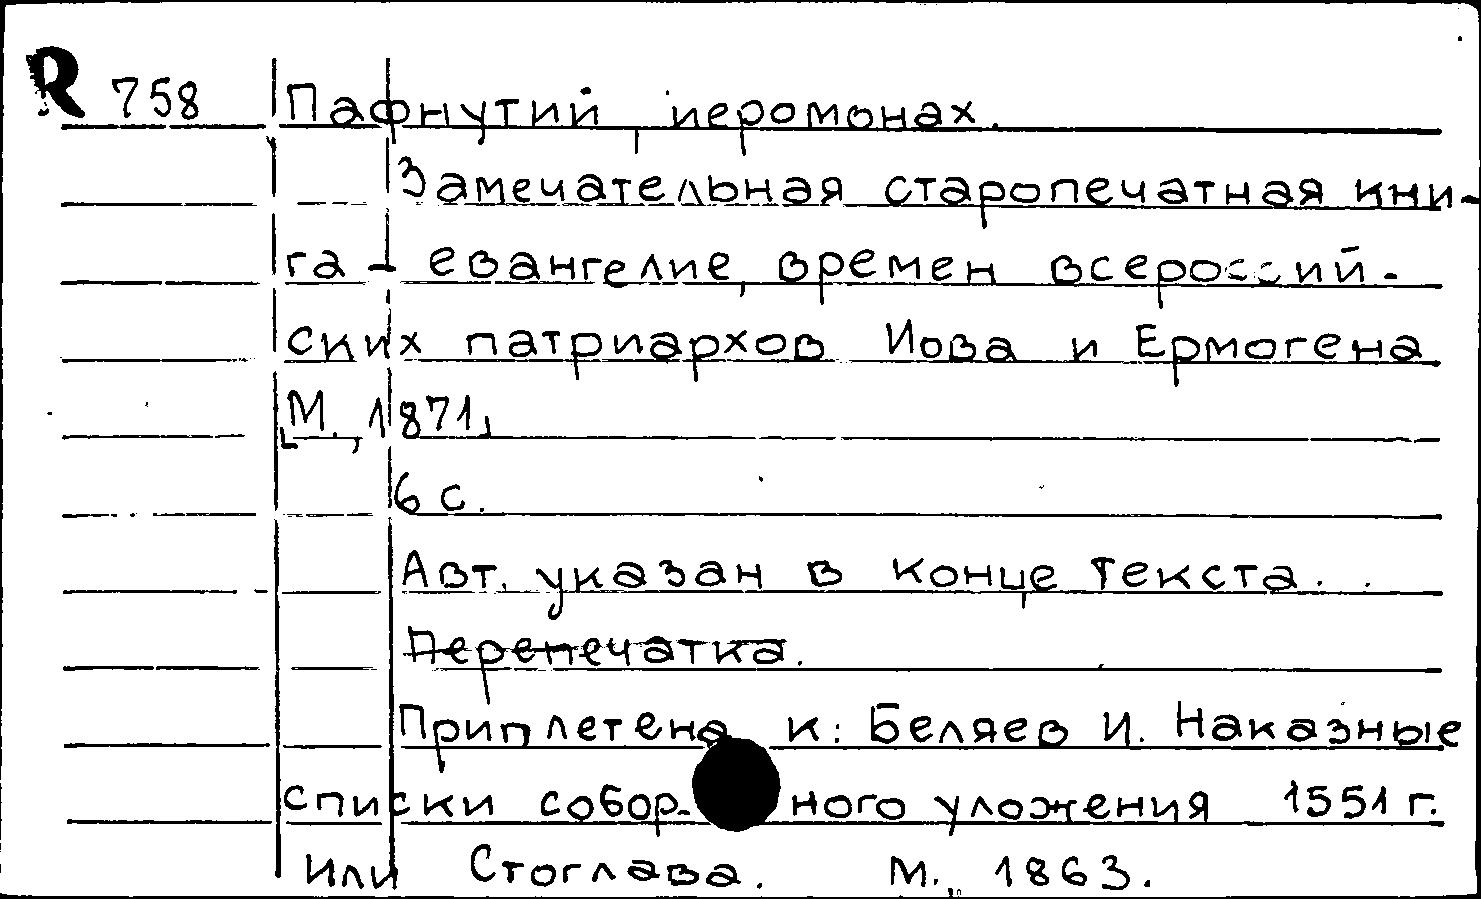 R 758 Пафнутий, иеромонах.
Замечательная старопечатная кни-
га - евангелие, времен всероссий-
ских патриархов Иова и Ермогена
[М., 1871]
6 с.
Авт. указан в конце текста.
Перепечатка.
Приплетена к: Беляев И. Наказные
списки собор-ного уложения 1551 г.
или Стоглава. М., 1863.